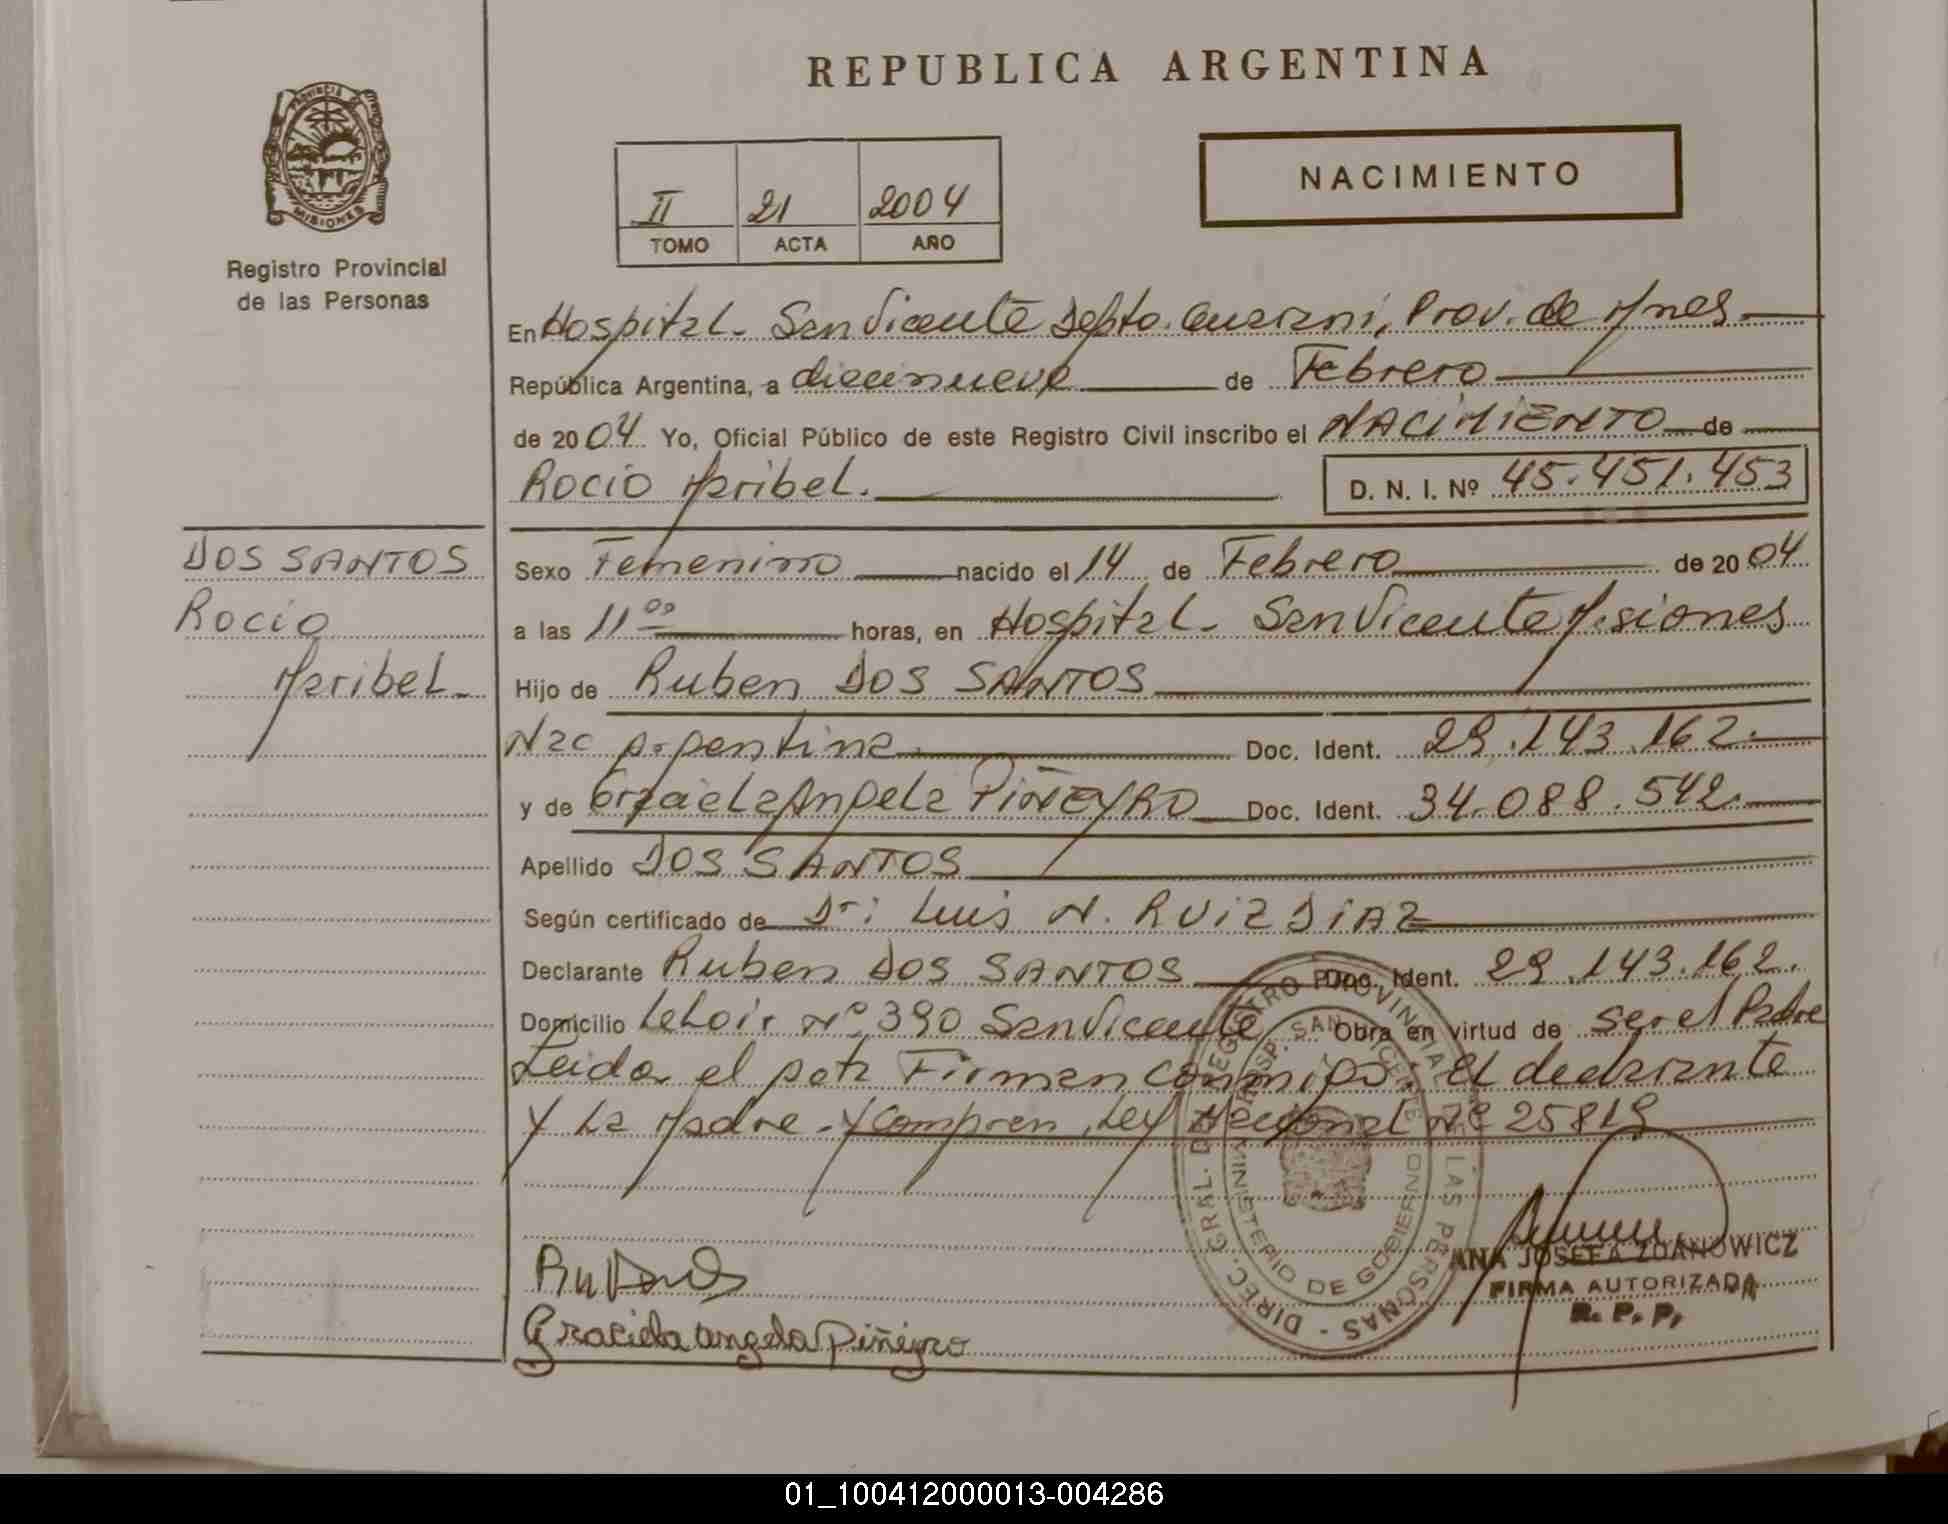 REPUBLICA ARGENTINA
PROVINCIA DE MISIONES
Registro Provincial
de las Personas
II 21 2004
TOMO ACTA AÑO
NACIMIENTO
En Hospital - San Vicente Dpto. Guarani, Prov. de Mnes
República Argentina, a diecinueve de Febrero
de 2004 Yo, Oficial Público de este Registro Civil inscribo el NACIMIENTO de
Rocio Maribel. D. N. I. Nº 45.451.453
DOS SANTOS
Rocio
Maribel
Sexo Femenino nacido el 14 de Febrero de 2004
a las 11 00 horas, en Hospital - San Vicente Misiones
Hijo de Ruben DOS SANTOS
Nac Argentina Doc. Ident. 29.143.162.
y de Graciela Angela PIÑEYRO Doc. Ident. 34.088.542.
Apellido DOS SANTOS
Según certificado de Dr: Luis N. RUIZ DIAZ
Declarante Ruben DOS SANTOS Doc. Ident. 29.143.162.
Domicilio Leloir Nº 390 San Vicente Obra en virtud de ser el Padre
Leida el acta Firman conmigo: El declarante
y La Madre - y compren Ley Nacional Nº 25819
DIREC. GRAL. DEL REGISTRO PROVINCIAL DE LAS PERSONAS
SAN VICENTE
MINISTERIO DE GOBIERNO
Graciela angela Piñeyro
ANA JOSEFA ZDANOWICZ
FIRMA AUTORIZADA
R. P. P.
01_100412000013-004286